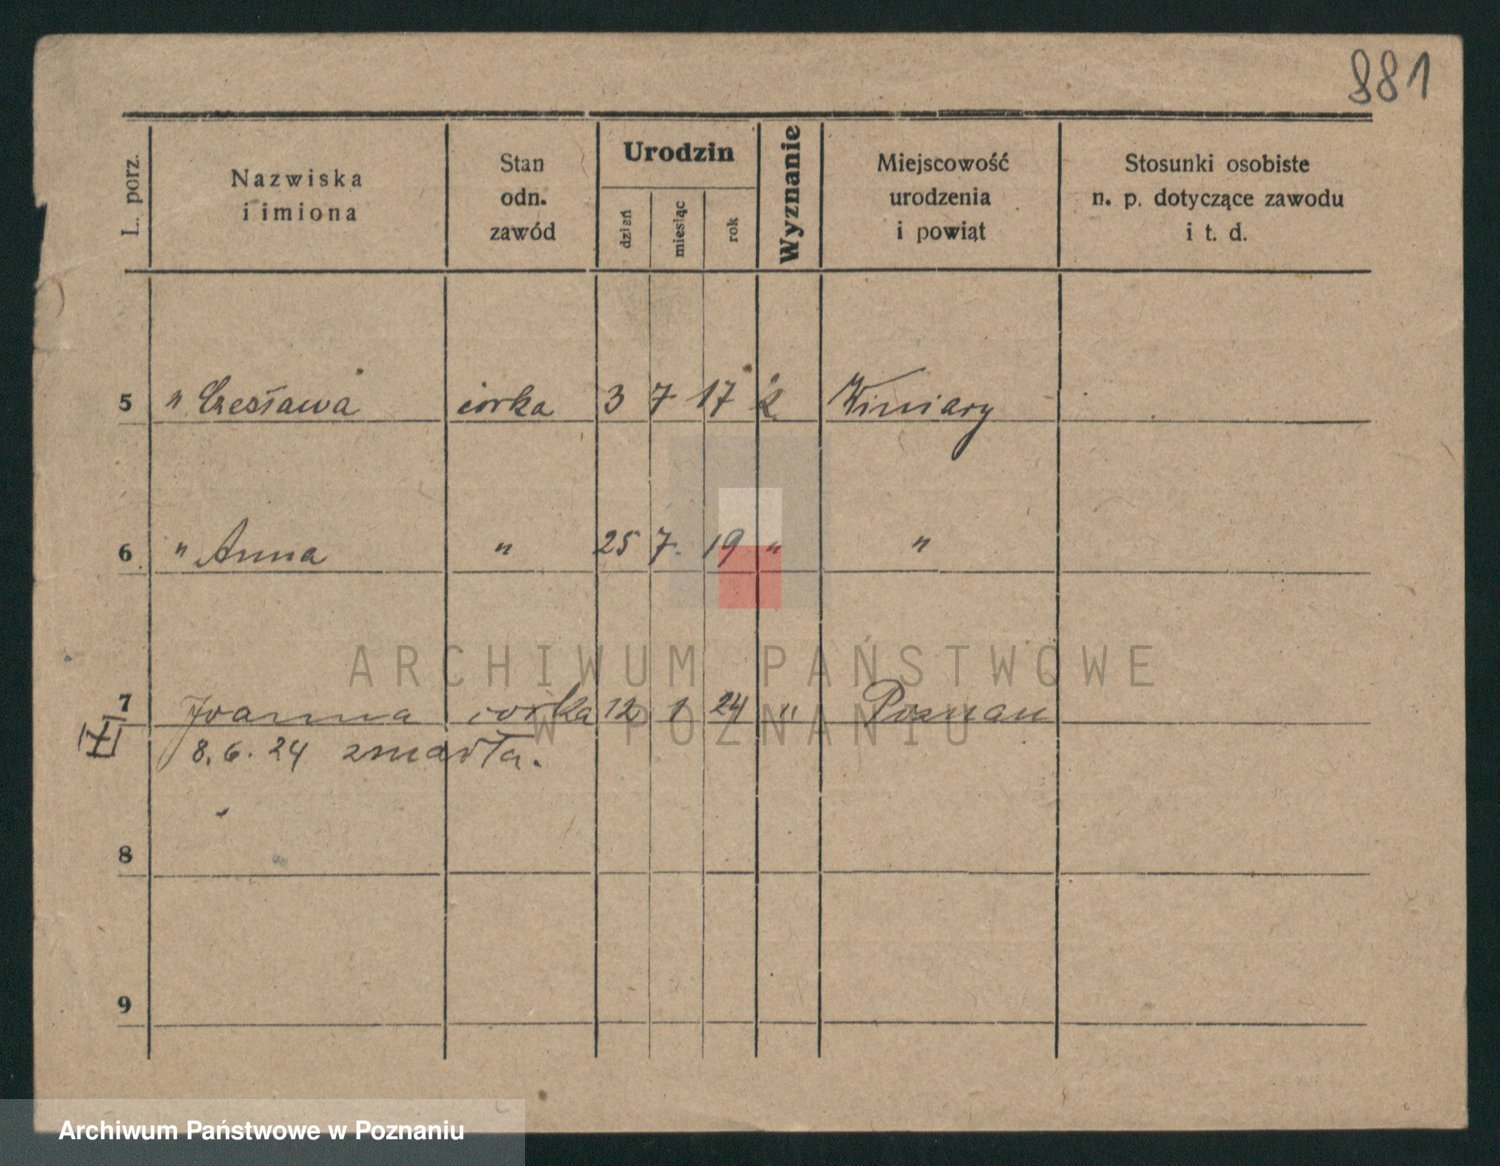 881
L. porz.
Nazwiska
i imiona
Stan
odn.
zawód
Urodzin
dzień
miesiąc
rok
Wyznanie
Miejscowość
urodzenia
i powiąt
Stosunki osobiste
n. p. dotyczące zawodu
i t. d.
5 " Czesława córka 3 7 17 Winiary
6 " Anna " 25 7. 19 " "
7 Joanna córka 12 1 24 " Poznań
8.6.24 zmarła.
8
9
ARCHIWUM PAŃSTWOWE
W POZNANIU
Archiwum Państwowe w Poznaniu